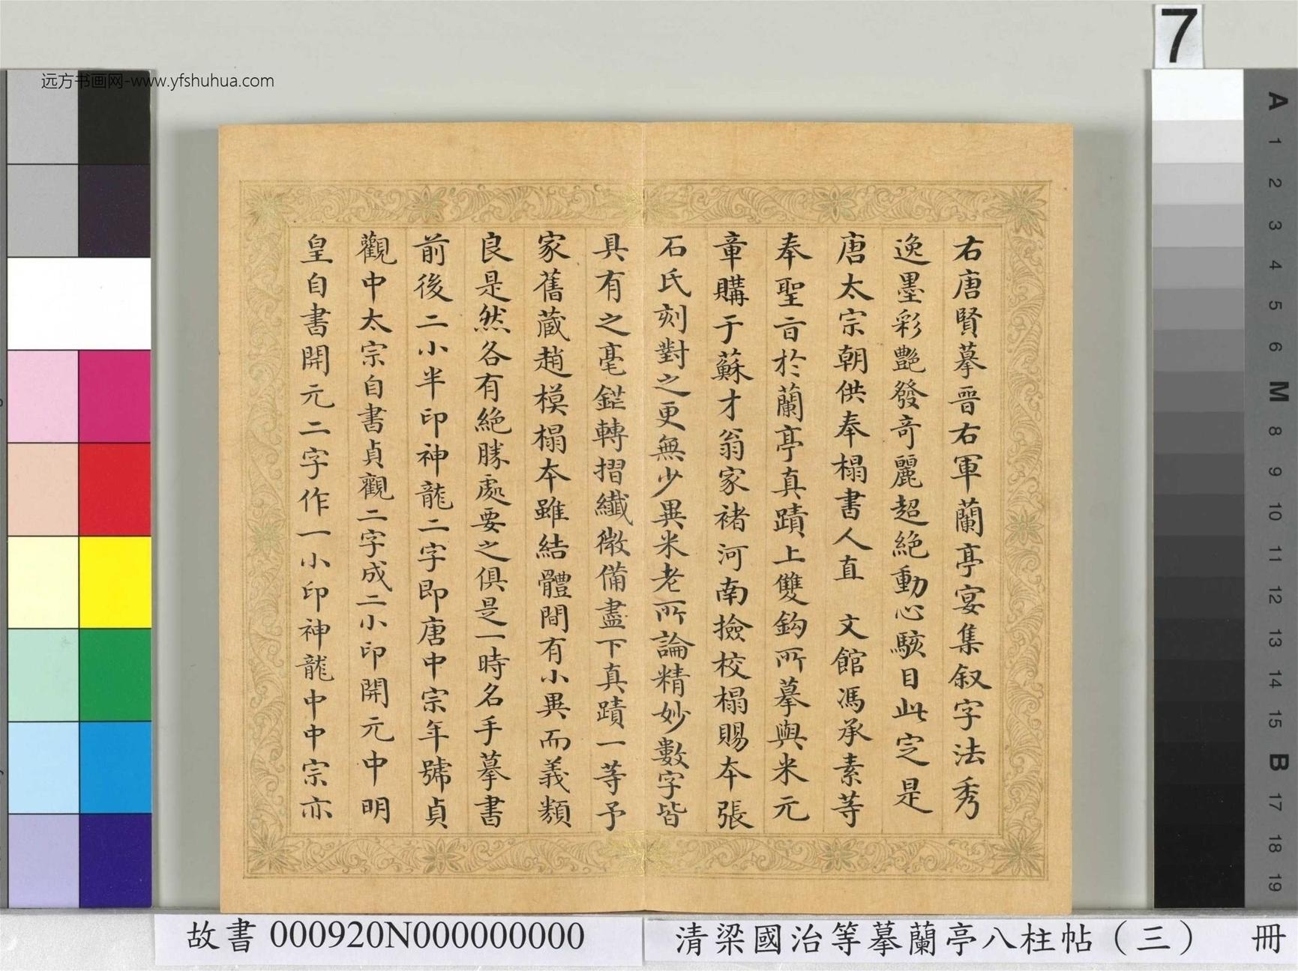 远方书画网-www.yfshuhua.com
7
右唐賢摹晋右軍蘭亭宴集叙字法秀
逸墨彩艷發奇麗超絶動心駭目此定是
唐太宗朝供奉榻書人直 文館馮承素等
奉聖旨於蘭亭真蹟上雙鈎所摹與米元
章購于蘇才翁家褚河南撿校榻賜本張
石氏刻對之更無少異米老所論精妙數字皆
具有之毫鋩轉摺纖微備盡下真蹟一等予
家舊蔵趙模榻本雖結體間有小異而義類
良是然各有絶勝處要之俱是一時名手摹書
前後二小半印神龍二字即唐中宗年號貞
觀中太宗自書貞觀二字成二小印開元中明
皇自書開元二字作一小印神龍中中宗亦
A
1
2
3
4
5
6
M
8
9
10
11
12
13
14
15
B
17
18
19
故書 000920N000000000
清梁國治等摹蘭亭八柱帖（三） 冊